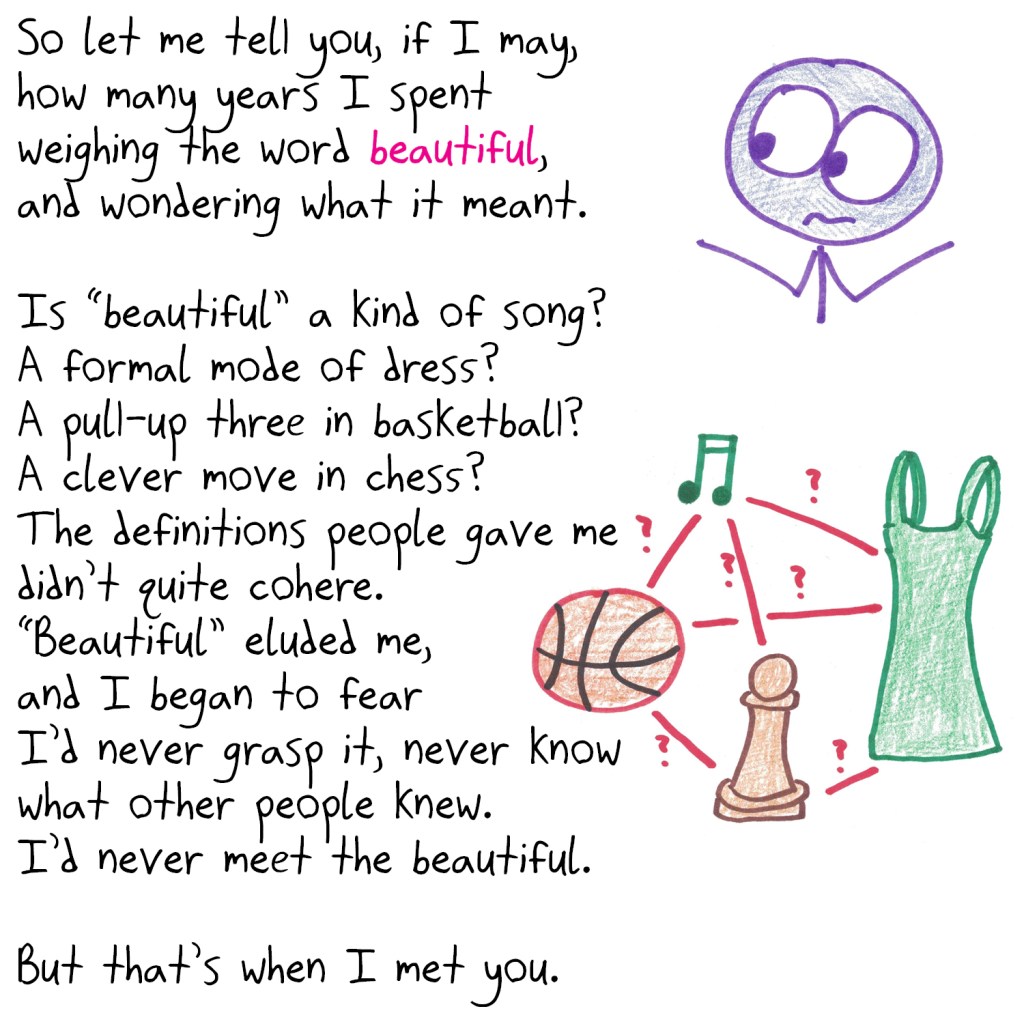 So let me tell you, if I may,
how many years I spent
weighing the word beautiful,
and wondering what it meant.
Is “beautiful” a kind of song?
A formal mode of dress?
A pull-up three in basketball?
A clever move in chess?
The definitions people gave me
didn't quite cohere.
“Beautiful” eluded me,
and I began to fear
I'd never grasp it, never know
what other people knew.
I'd never meet the beautiful.
But that's when I met you.
?
?
?
?
?
?